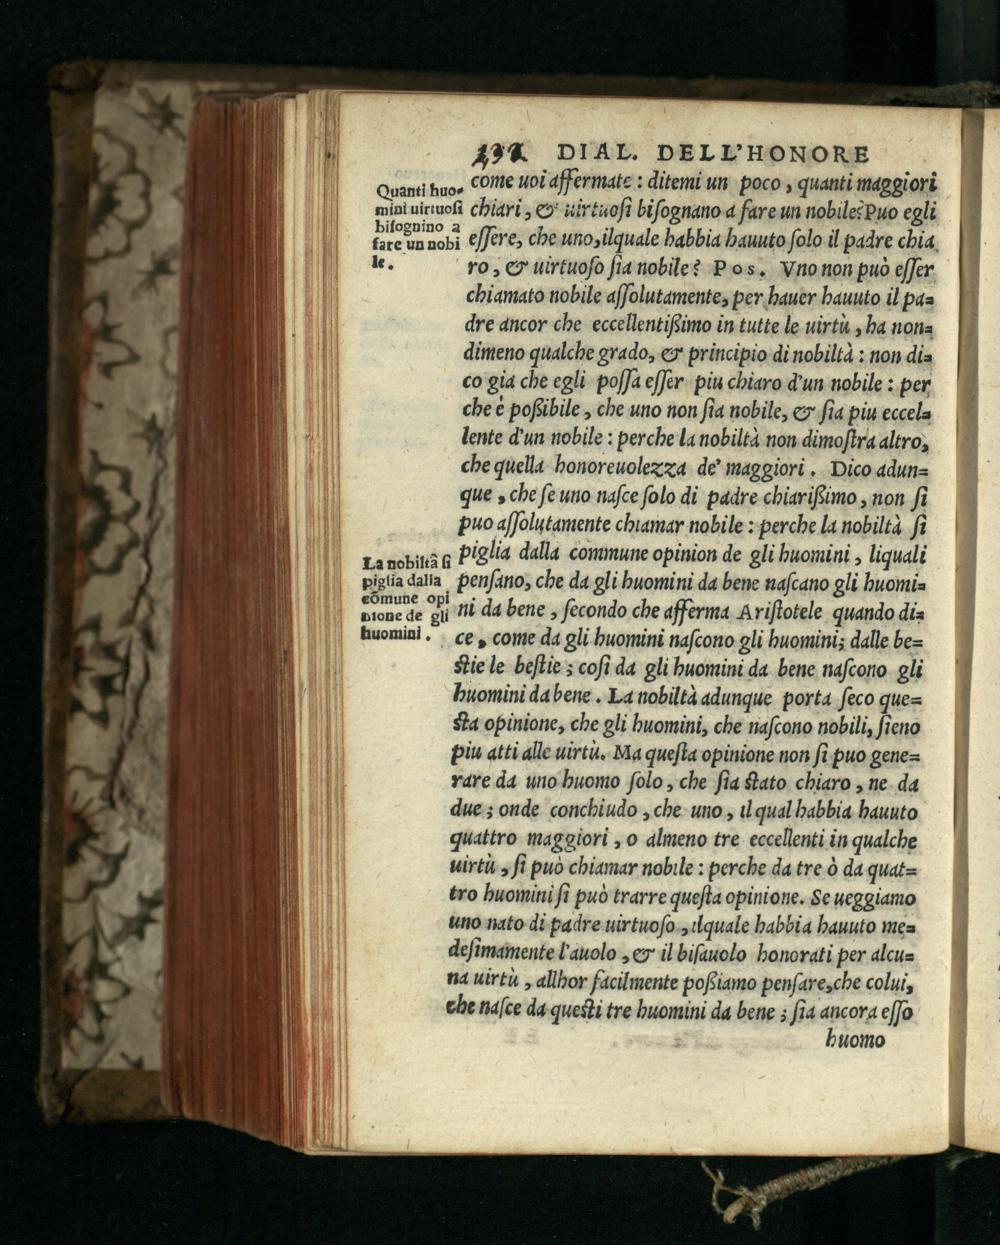 DIAL. DELL'HONORE
Quanti huo-
mini uirtuoſi
biſognino a
fare un nobi
le.
come uoi affermate : ditemi un poco , quanti maggiori
chiari , & uirtuoſi biſognano a fare un nobile? Puo egli
eſſere, che uno, ilquale habbia hauuto ſolo il padre chia
ro , & uirtuoſo ſia nobile ? Pos. Vno non può eſſer
chiamato nobile aſſolutamente, per hauer hauuto il pa=
dre ancor che eccellentißimo in tutte le uirtù , ha non=
dimeno qualche grado, & principio di nobiltà : non di=
co gia che egli poſſa eſſer piu chiaro d'un nobile : per
che é poßibile , che uno non ſia nobile, & ſia piu eccel=
lente d'un nobile : perche la nobiltà non dimoſtra altro,
che quella honoreuolezza de' maggiori . Dico adun=
que , che ſe uno naſce ſolo di padre chiarißimo , non ſi
puo aſſolutamente chiamar nobile : perche la nobiltà ſi
La nobiltà ſi
piglia dalla
cōmune opi
nione de gli
huomini .
piglia dalla commune opinion de gli huomini , liquali
penſano, che da gli huomini da bene naſcano gli huomi=
ni da bene , ſecondo che afferma Ariſtotele quando di=
ce , come da gli huomini naſcono gli huomini; dalle be=
ſtie le beſtie ; coſi da gli huomini da bene naſcono gli
huomini da bene . La nobiltà adunque porta ſeco que=
ſta opinione, che gli huomini, che naſcono nobili, ſieno
piu atti alle uirtù. Ma queſta opinione non ſi puo gene=
rare da uno huomo ſolo , che ſia ſtato chiaro , ne da
due ; onde conchiudo , che uno , il qual habbia hauuto
quattro maggiori , o almeno tre eccellenti in qualche
uirtù , ſi può chiamar nobile : perche da tre ò da quat=
tro huomini ſi può trarre queſta opinione. Se ueggiamo
uno nato di padre uirtuoſo , ilquale habbia hauuto me=
deſimamente l'auolo , & il biſauolo honorati per alcu=
na uirtù , allhor facilmente poßiamo penſare, che colui,
che naſce da queſti tre huomini da bene ; ſia ancora eſſo
huomo